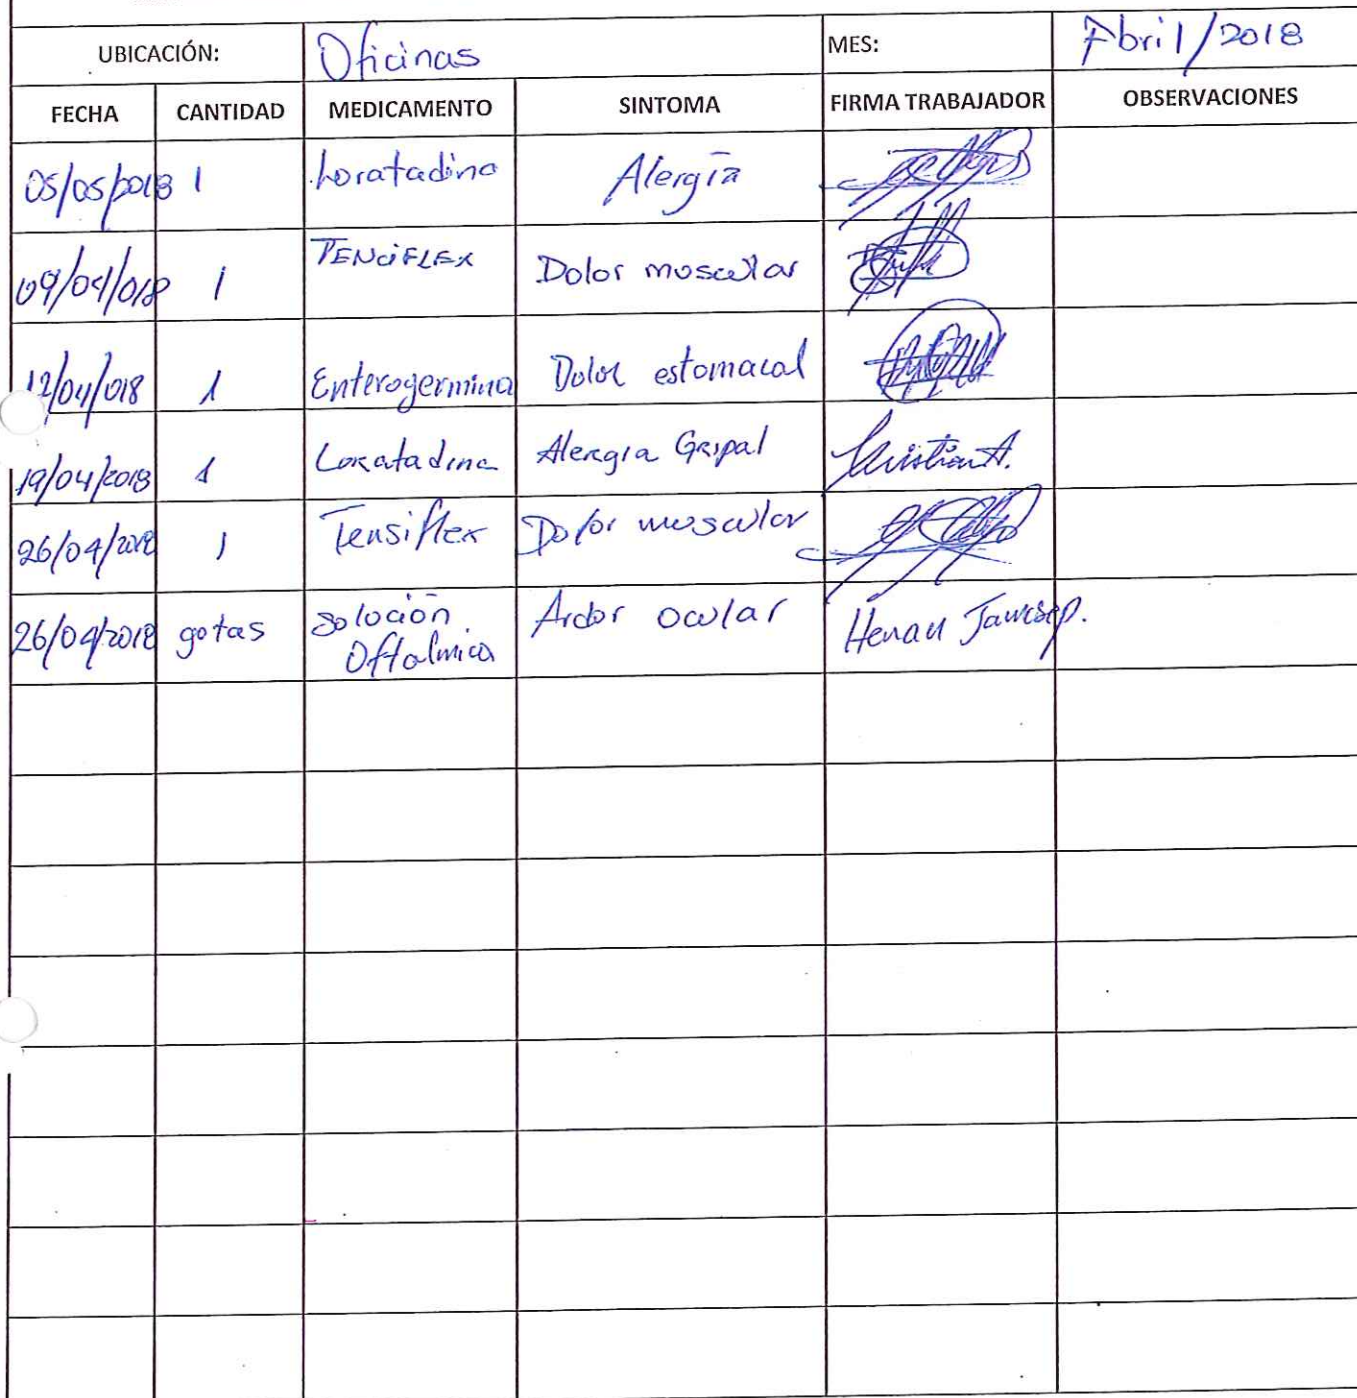 UBICACIÓN: Oficinas MES: Abril/2018
FECHA CANTIDAD MEDICAMENTO SINTOMA FIRMA TRABAJADOR OBSERVACIONES
05/05/2018 1 Loratadina Alergia
09/04/018 1 TENCIFLEX Dolor muscular
12/04/018 1 Enterogermina Dolor estomacal
19/04/2018 1 Loratadina Alergia Gripal Cristian A.
26/04/2018 1 Tensiflex Dolor muscular
26/04/2018 gotas Soloción Ardor ocular Henau
Oftalmica